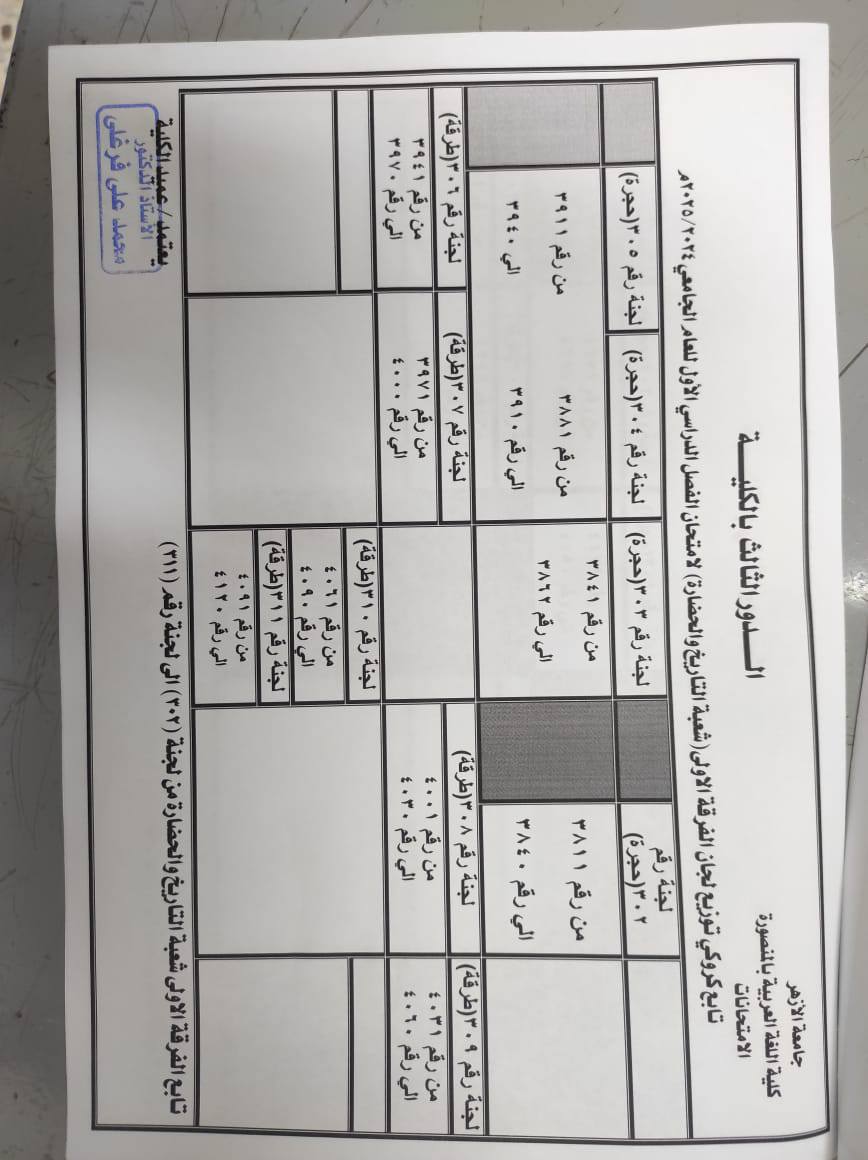 جامعة الأزهر
كلية اللغة العربية بالمنصورة
الامتحانات
الـــدور الثالث بالكليـــة
تابع كروكي توزيع لجان الفرقة الاولى (شعبة التاريخ والحضارة) لامتحان الفصل الدراسي الأول للعام الجامعي ٢٠٢٥/٢٠٢٤م
لجنة رقم
٣٠٢(حجرة)
من رقم ٣٨١١
الي رقم ٣٨٤٠
لجنة رقم ٣٠٣(حجرة)
من رقم ٣٨٤١
الي رقم ٣٨٦٢
لجنة رقم ٣٠٤(حجرة)
من رقم ٣٨٨١
الي رقم ٣٩١٠
لجنة رقم ٣٠٥(حجرة)
من رقم ٣٩١١
الي رقم ٣٩٤٠
لجنة رقم ٣٠٩(طرقة)
من رقم ٤٠٣١
الي رقم ٤٠٦٠
لجنة رقم ٣٠٨(طرقة)
من رقم ٤٠٠١
الي رقم ٤٠٣٠
لجنة رقم ٣٠٧(طرقة)
من رقم ٣٩٧١
الي رقم ٤٠٠٠
لجنة رقم ٣٠٦(طرقة)
من رقم ٣٩٤١
الي رقم ٣٩٧٠
لجنة رقم ٣١٠(طرقة)
من رقم ٤٠٦١
الي رقم ٤٠٩٠
لجنة رقم ٣١١(طرقة)
من رقم ٤٠٩١
الي رقم ٤١٢٠
تابع الفرقة الاولى شعبة التاريخ والحضارة من لجنة (٣٠٢) الى لجنة رقم (٣١١)
يعتمد/ عميد الكلية
الأستاذ الدكتور
محمد على فرغلى